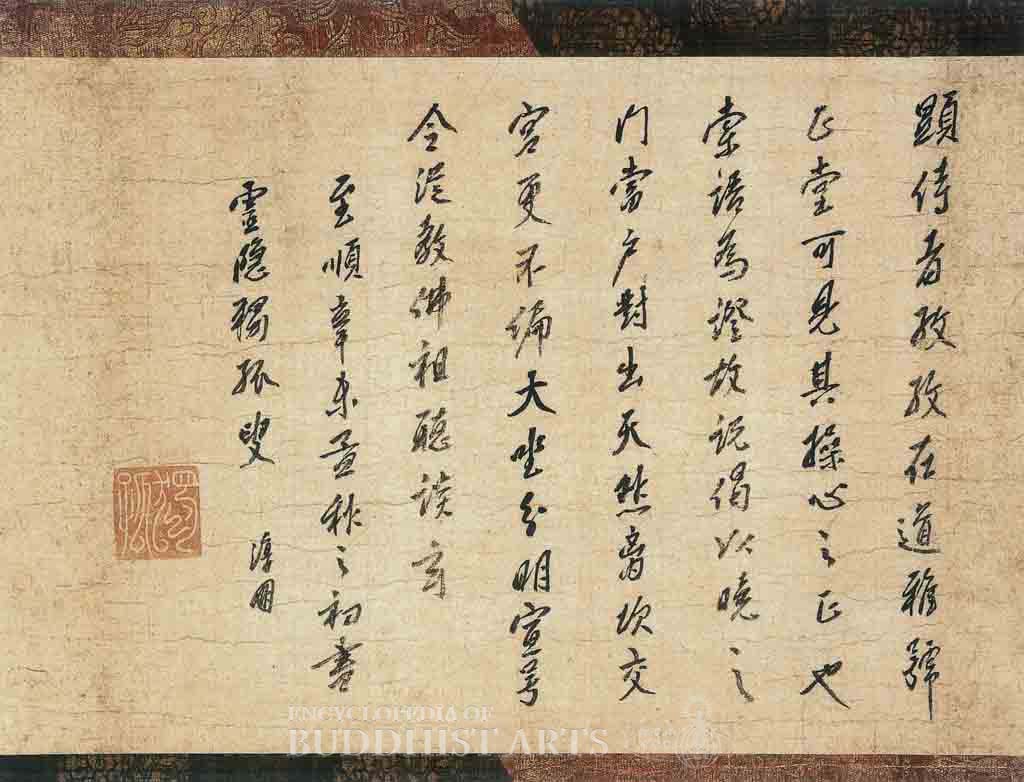 顯侍者孜孜在道雅號
正堂可見其操心之正也
索語為證故説偈以曉之
门當户對出天然离坎交
宫更不偏大坐分明宣号
令從教佛祖聽談玄
至順辛未孟秋之初書
靈隐獨孤叟 淳朋
獨孤
ENCYCLOPEDIA OF
BUDDHIST ARTS